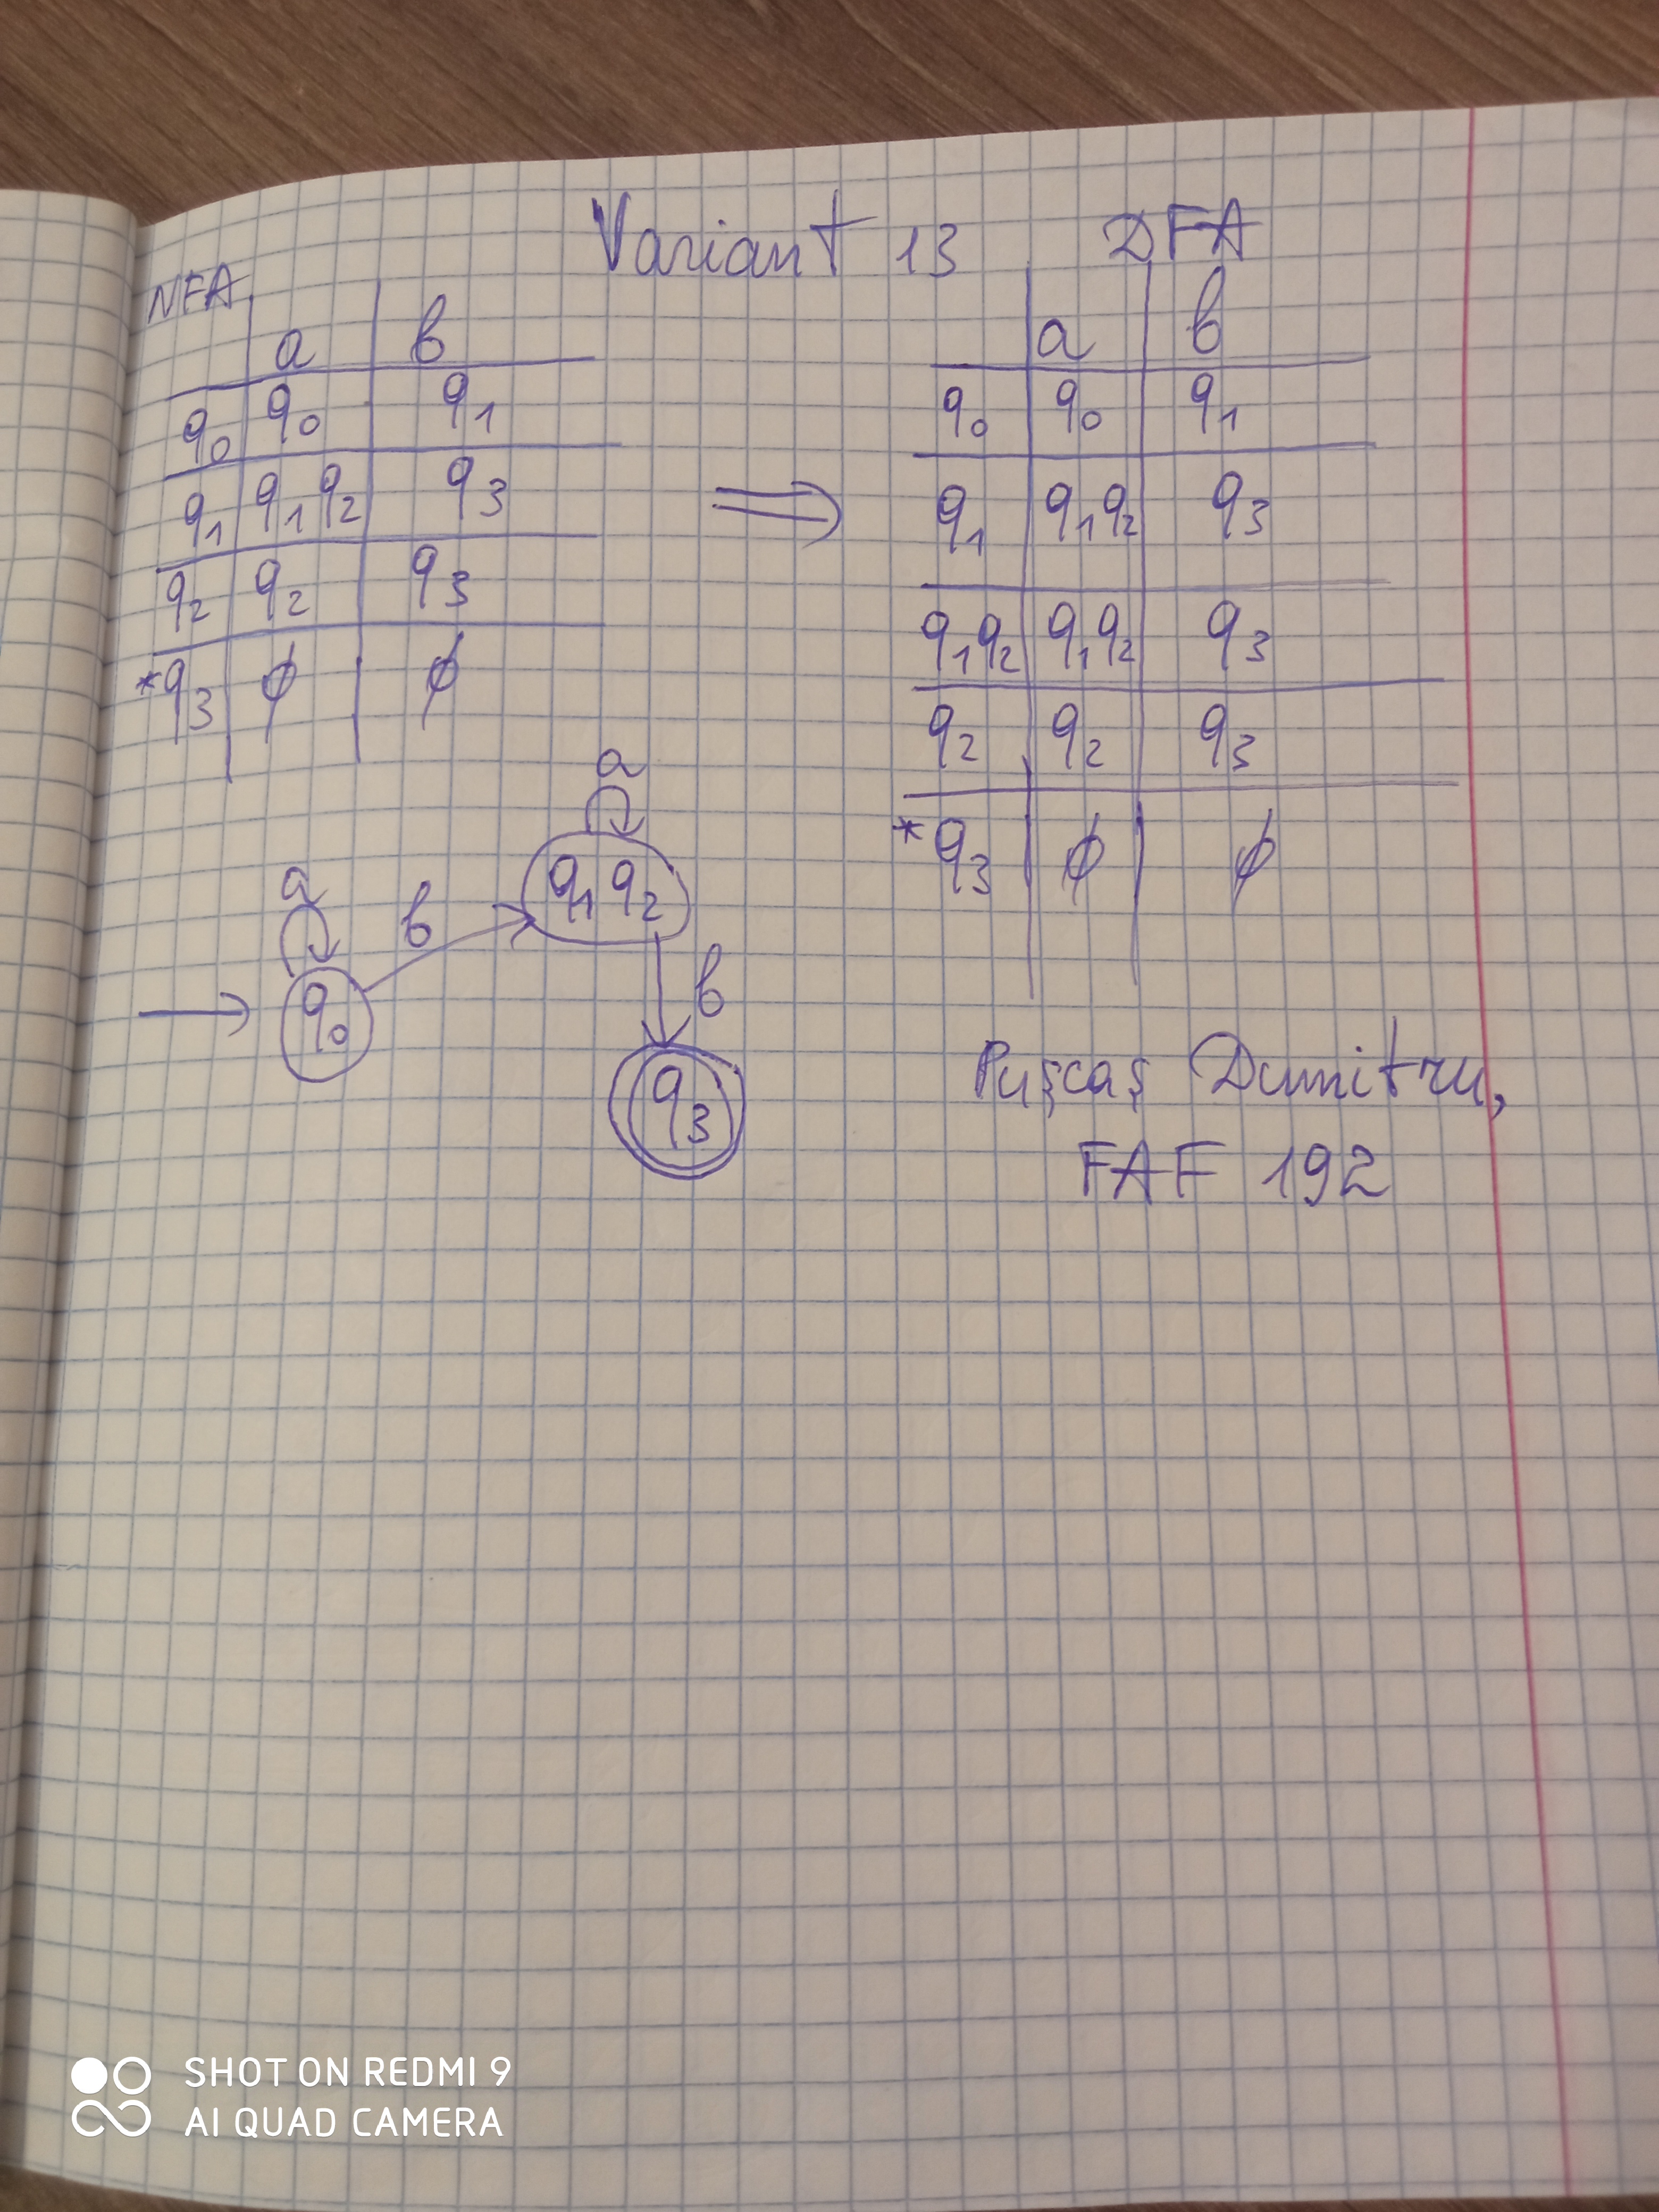 Variant 13
NFA
a b
q0 q0 q1
q1 q1q2 q3
q2 q2 q3
*q3 ϕ ϕ
⇒
DFA
a b
q0 q0 q1
q1 q1q2 q3
q1q2 q1q2 q3
q2 q2 q3
*q3 ϕ ϕ
a
q1 q2
a
b
q0
b
q3
Pușcaș Dumitru,
FAF 192
SHOT ON REDMI 9
AI QUAD CAMERA